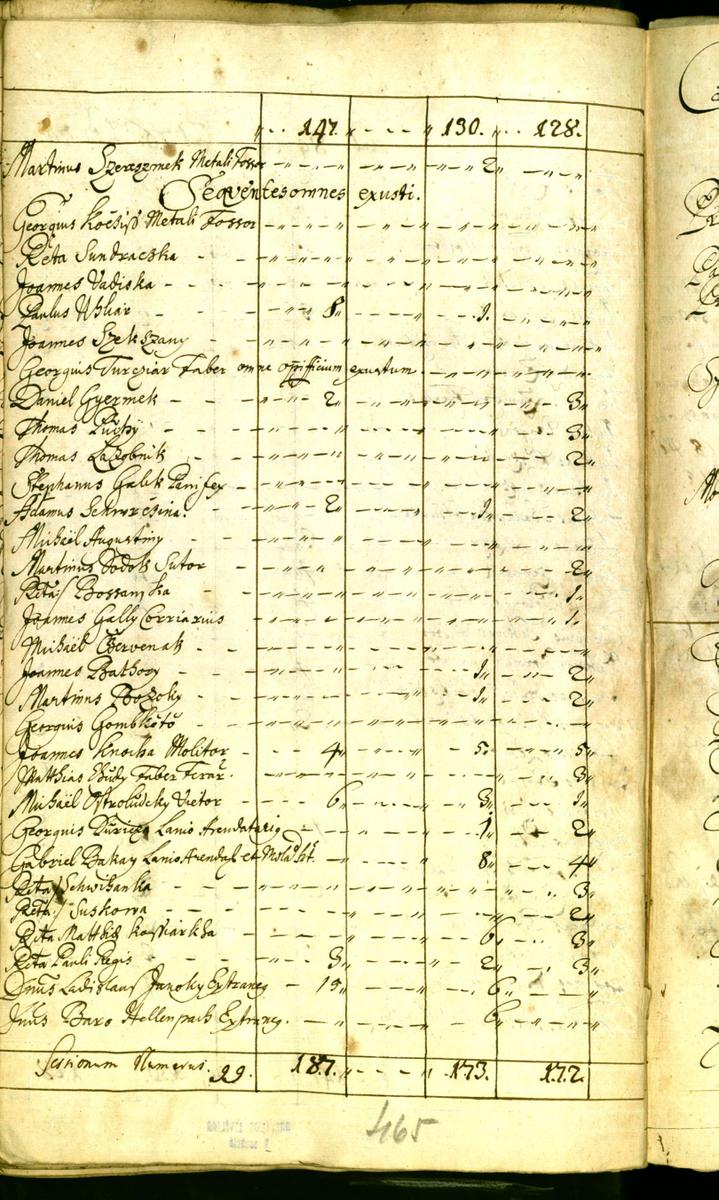 147. 130. 128.
Martinus Szereszmek Metali Fossor 2
Seqventes omnes exusti.
Georgius Metali Fossor
Rcta Sundraczka
Joannes Vadiska
Paulus Uhliar 8 1
Joannes Szekszany
Georgius Turcsiar Faber omne opifficium exustum.
Daniel Gyermek 2 3
Thomas Puchy 3
Thomas Lazebnik 2
Stephanus Galik Panifex
Adamus 2 1 2
Michaël Augustiny
Martinus Dodok Sutor 2
Rcta Bossanska 1
Joannes Gally Corriarius 1
Michaël Cservenak
Joannes Bathory 1 2
Martinus Bozoky 1 2
Georgius Gombkötö
Joannes Knocha Molitor 4 5 5
Matthias Faber Ferar. 3
Michaël Ostrolucky Vietor 6 3 1
Georgius Lanio Arendatarig 1 2
Gabriel Bakay Lanio 8 4
Rcta Schwihanka 3
Rcta Suskowa 2
Rcta Matthiæ 6 3
Rcta Pauli Regis 3 2 3
Dnus Ladislaus Janoky Extraneg 15 6
Jnus Baro Hellenpach Extraneg. 6
Sessionum Numerus. 99. 187. 173. 172.
465